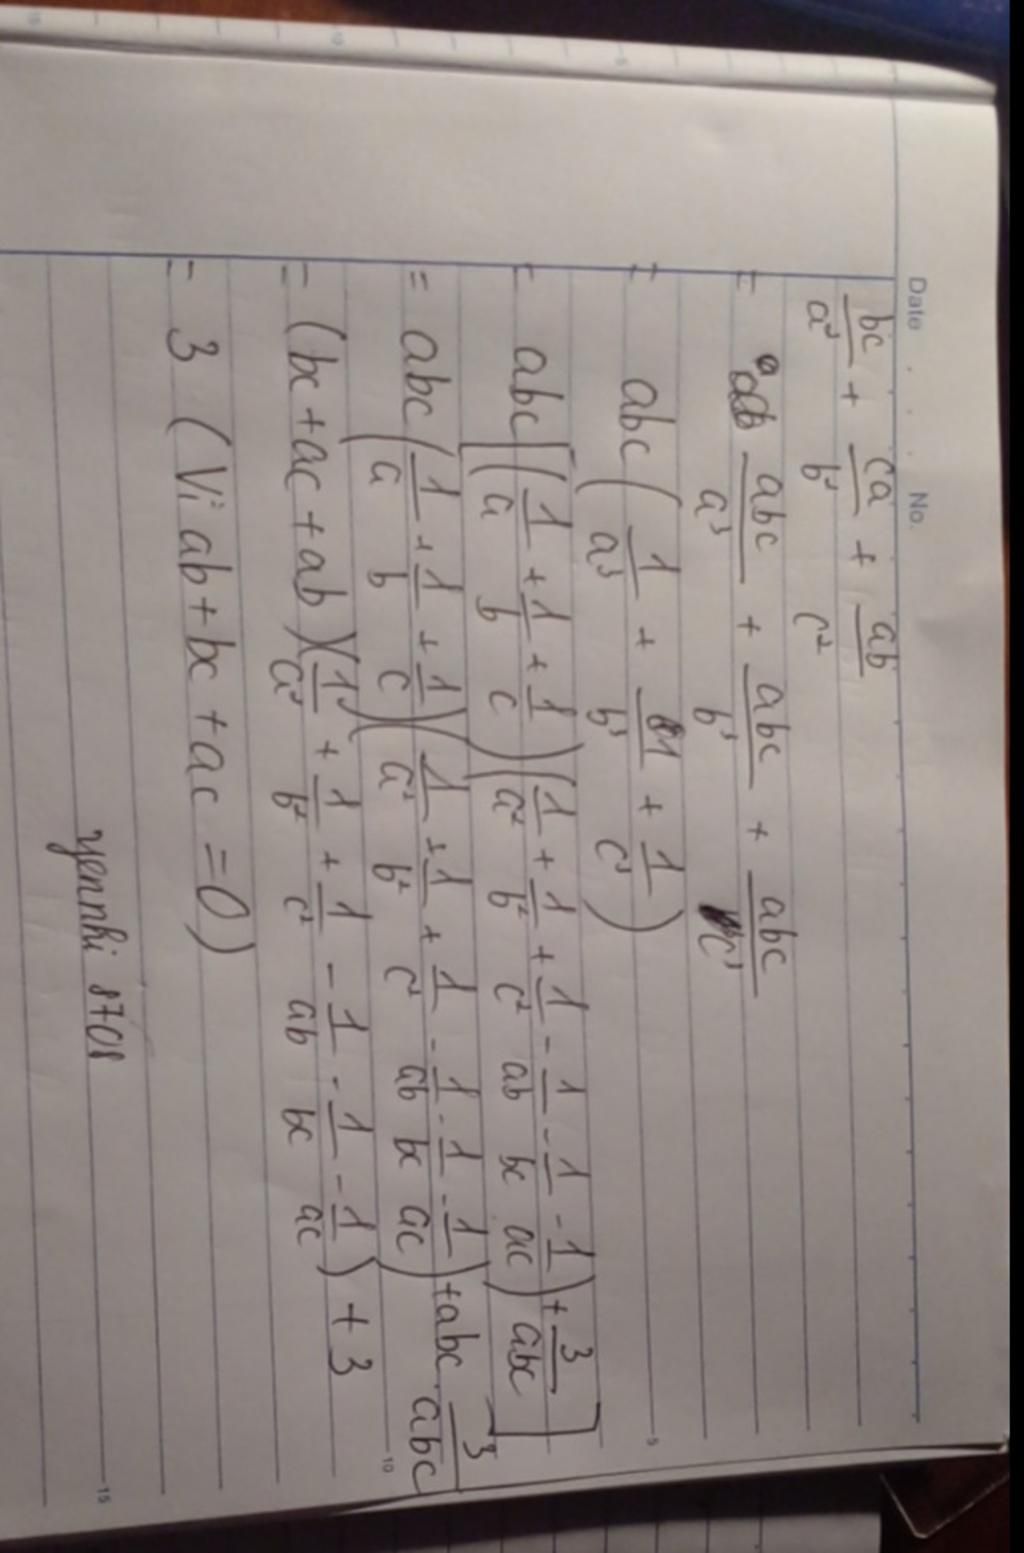 Date . . . No.
bc/a² + ca/b² + ab/c²
= abc/a³ + abc/b³ + abc/c³
= abc(1/a³ + 1/b³ + 1/c³)
= abc[(1/a + 1/b + 1/c)(1/a² + 1/b² + 1/c² - 1/ab - 1/bc - 1/ac) + 3/abc]
= abc(1/a + 1/b + 1/c)(1/a² + 1/b² + 1/c² - 1/ab - 1/bc - 1/ac) + abc. 3/abc
= (bc + ac + ab)(1/a² + 1/b² + 1/c² - 1/ab - 1/bc - 1/ac) + 3
= 3 (Vì ab + bc + ac = 0)
yennhi 8708
5
10
15